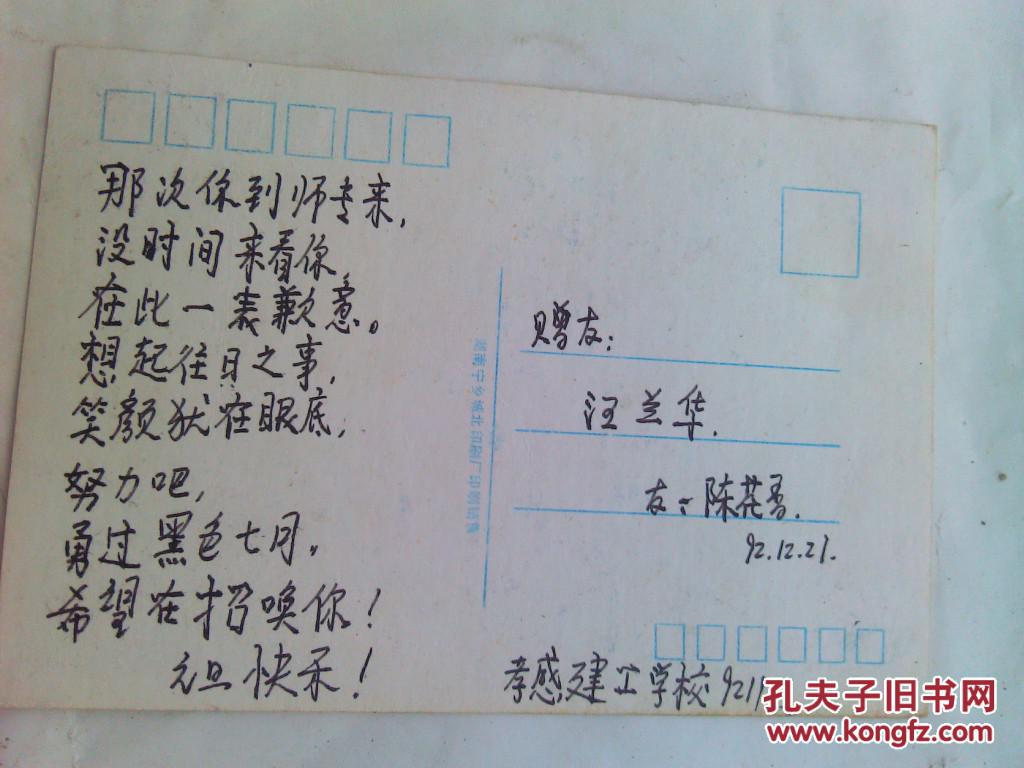 那次你到师专来,
没时间来看你,
在此一表歉意。
想起往日之事,
笑颜犹在眼底,
努力吧,
勇过黑色七月。
希望在招唤你!
元旦快乐!
赠友:
汪兰华.
友:陈花香.
92.12.21.
孝感建工学校 921
孔夫子旧书网
www.kongfz.com